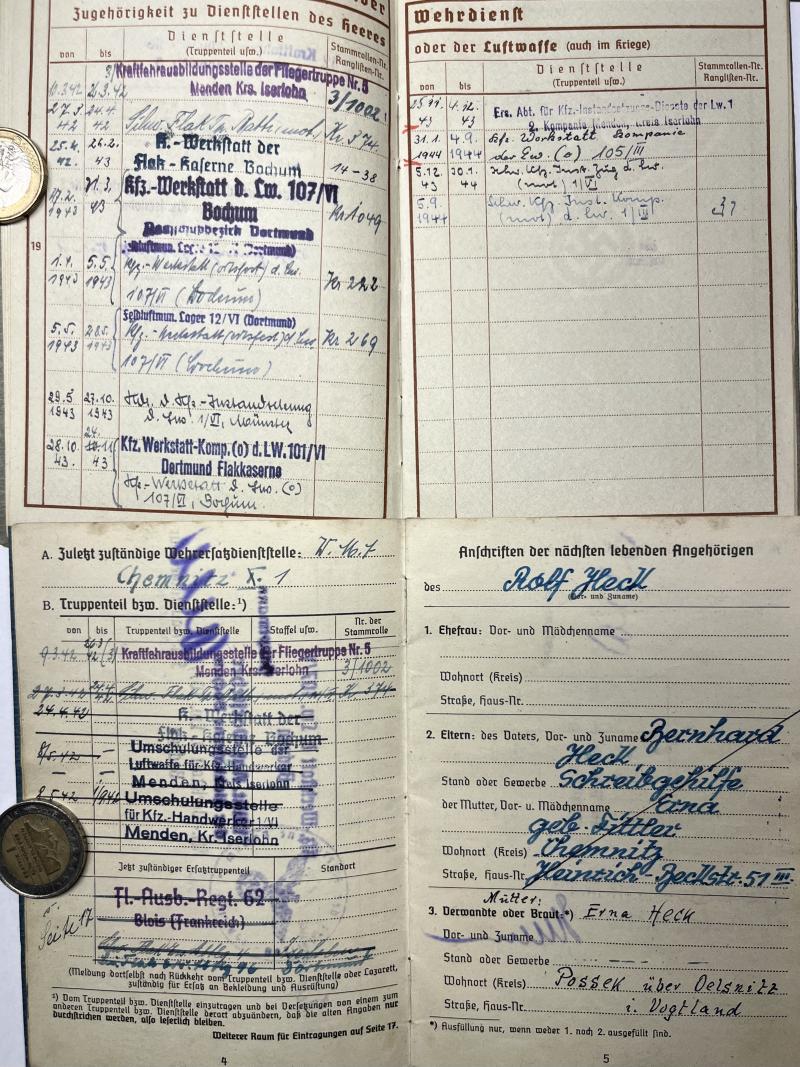 Zugehörigkeit zu Dienststellen des Heeres
von
bis
Dienststelle
(Truppenteil usw.)
Stammrollen-Nr.
Ranglisten-Nr.
10.3.42 26.3.42
3/Kraftfahrausbildungsstelle der Fliegertruppe Nr. 5
Menden Krs. Iserlohn
3/1002
27.3. 42
24.4. 42
Kr. 374
25.4. 42.
26.2. 43
K.-Werkstatt der
Flak-Kaserne Bochum
14-38
1943
43
Kfz.-Werkstatt d. Lw. 107/VI
Bochum
Kr 1049
19
1.4. 1943
5.5. 1943
Kfz.-Werkstatt (ortsfest) d. Lw.
107/VI (Bochum)
Kr 222
Feldluftmun. Lager 12/VI (Dortmund)
5.5. 1943
28.5. 1943
Kfz.-Werkstatt (ortsfest) d. Lw
107/VI (Bochum)
Kr 269
29.5 1943
27.10. 1943
d. Kfz.-Instandsetzung
d. Lw. 1/VI, Münster
28.10. 43.
24. 10.11 43
Kfz. Werkstatt-Komp. (o) d. LW. 101/VI
Dortmund Flakkaserne
Kfz.-Werkstatt d. Lw. (o)
107/VI, Bochum.
Wehrdienst
oder der Luftwaffe (auch im Kriege)
von
bis
Dienststelle
(Truppenteil usw.)
Stammrollen-Nr.
Ranglisten-Nr.
25.11. 43
4.12. 43
Ers. Abt. für Kfz.-Instandsetzungs-Dienste der Lw. 1
2. Kompanie Menden, Kr. Iserlohn
31.1. 1944
4.9. 1944
Kfz. Werkstatt Kompanie
der Lw. (o) 105/III
5.12. 43
30.1. 44
Schw. Kfz. Inst. Zug d. Lw.
(mot) 1/VI
5.9. 1944
Schw. Kfz. Inst. Komp.
(mot) d. Lw. 1/III
A. Zuletzt zuständige Wehrersatzdienststelle: W.M.A
Chemnitz X. 1
B. Truppenteil bzw. Dienststelle:¹)
von
bis
Truppenteil bzw. Dienststelle
Staffel usw.
Nr. der
Stammrolle
9.3.42
26.3 42
(3) Kraftfahrausbildungsstelle der Fliegertruppe Nr. 5
Menden Krs. Iserlohn
3/1002
27.3.42
24.4. 42
Kr. 374
24.4.42
K.-Werkstatt der
Flak-Kaserne Bochum
8/5.42 —
Umschulungsstelle der
Luftwaffe für Kfz.-Handwerker
Menden, Kreis Iserlohn
8.5.42
Umschulungsstelle
für Kfz.-Handwerker 1/VI
Menden, Kr. Iserlohn
Jetzt zuständiger Ersatztruppenteil
Standort
Fl.-Ausb.-Regt. 62
Blois (Frankreich)
Seite 17
Dortmund
(Meldung dortselbst nach Rückkehr vom Truppenteil bzw. Dienststelle oder Lazarett,
zuständig für Ersatz an Bekleidung und Ausrüstung)
¹) Vom Truppenteil bzw. Dienststelle einzutragen und bei Versetzungen von einem zum
anderen Truppenteil bzw. Dienststelle derart abzuändern, daß die alten Angaben nur
durchstrichen werden, also leserlich bleiben.
Weiterer Raum für Eintragungen auf Seite 17.
4
Anschriften der nächsten lebenden Angehörigen
des Rolf Heck
(Vor- und Zuname)
1. Ehefrau: Vor- und Mädchenname
Wohnort (Kreis)
Straße, Haus-Nr.
2. Eltern: des Vaters, Vor- und Zuname Bernhard
Heck
Stand oder Gewerbe Schreibgehilfe
der Mutter, Vor- u. Mädchenname Erna
geb. Fittler
Wohnort (Kreis) Chemnitz
Straße, Haus-Nr. Heinrich-Beckstr. 51 III.
Mutter:
3. Verwandte oder Braut:*) Erna Heck
Vor- und Zuname
Stand oder Gewerbe — — — —
Wohnort (Kreis) Possek über Oelsnitz
Straße, Haus-Nr. i. Vogtland
*) Ausfüllung nur, wenn weder 1. noch 2. ausgefüllt sind.
5